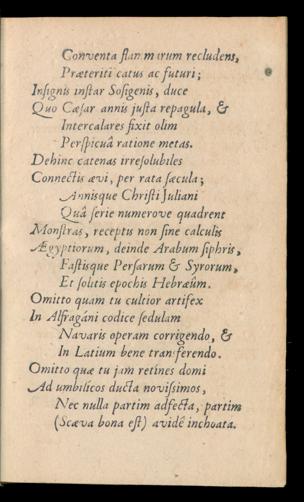 Conventa flammarum recludens,
Præteriti catus ac futuri;
Insignis instar Sosigenis, duce
Quo Cæsar annis justa repagula, &
Intercalares fixit olim
Perspicuâ ratione metas.
Dehinc catenas irresolubiles
Connectis ævi, per rata sæcula;
Annisque Christi Juliani
Quâ serie numerove quadrent
Monstras, receptis non sine calculis
Ægyptiorum, deinde Arabum siphris,
Fastisque Persarum & Syrorum,
Et solitis epochis Hebræûm.
Omitto quam tu cultior artifex
In Alfragáni codice sedulam
Navaris operam corrigendo, &
In Latium bene transferendo.
Omitto quæ tu jam retines domi
Ad umbilicos ducta novissimos,
Nec nulla partim adfecta, partim
(Scæva bona est) avidè inchoata.